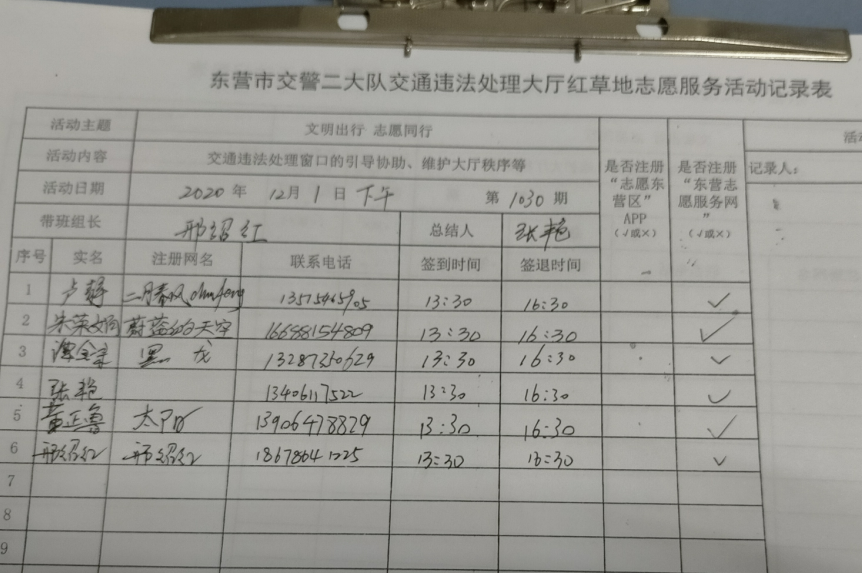 东营市交警二大队交通违法处理大厅红草地志愿服务活动记录表
活动主题 文明出行 志愿同行 是否注册“志愿东营区”APP（√或×） 是否注册“东营志愿服务网”（√或×） 活动
活动内容 交通违法处理窗口的引导协助、维护大厅秩序等 记录人：
活动日期 2020年 12月 1日 下午 第 1030 期
带班组长 邢绍红 总结人 张艳
序号 实名 注册网名 联系电话 签到时间 签退时间
1 卢 二月春风 13:30 16:30 ✓
2 朱荣娟 蔚蓝的天空 16658154809 13:30 16:30 ✓
3 谭金 黑龙 13287350629 13:30 16:30 ✓
4 张艳 13406117522 13:30 16:30 ✓
5 董正鲁 太阳 13906478829 13:30 16:30 ✓
6 邢绍红 邢绍红 13:30 16:30 ✓
7
8
9